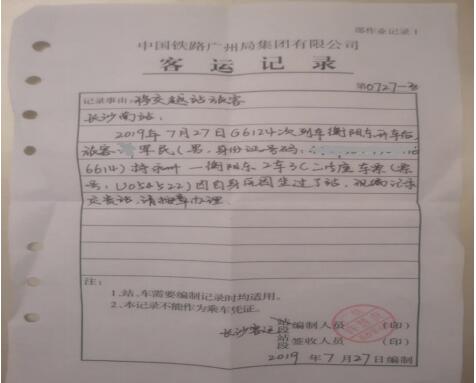 部作业记录1
中国铁路广州局集团有限公司
客运记录
第0727-3
记录事由:移交越站旅客
长沙南站:
2019年7月27日G6124次列车衡阳东开车后,
旅客 军民(男,身份证号码:
6614)持 一衡阳东2车3C二等座车票(票
号:U054522)因自身原因坐过了站,现编记录
交贵站,请按章办理.
注:
1.站、车需要编制记录时均适用。
2.本记录不能作为乘车凭证。
长沙客运 站段 编制人员 (印)
站段 签收人员 (印)
2019年7月27日编制